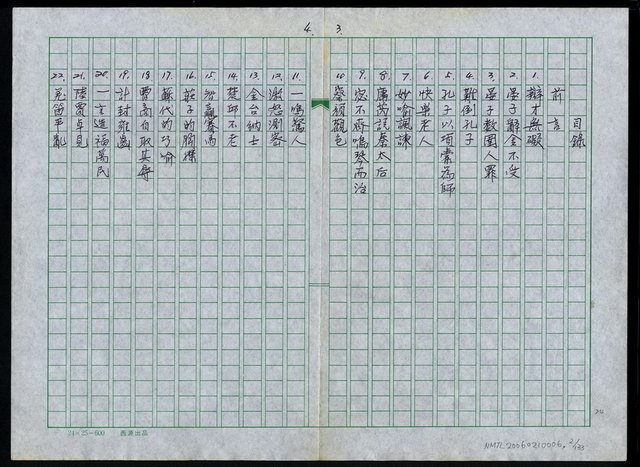 4. 3.
目錄
前言
1. 辯才無礙
2. 晏子辭金不受
3. 晏子數圉人罪
4. 難倒孔子
5. 孔子以項橐為師
6. 快樂老人
7. 妙喻諷諫
8. 庸芮說秦太后
9. 宓不齊鳴琴而治
10. 察顏觀色
11. 一鳴驚人
12. 激怒測容
13. 金台納士
14. 楚邱不老
15. 智贏齊高
16. 莊子的胸襟
17. 蘇代的巧喻
18. 曹商自取其辱
19. 計封雍齒
20. 一言造福萬民
21. 陸賈卓見
22.
24×25=600 西源出品
NMTL20060210006, 2/133